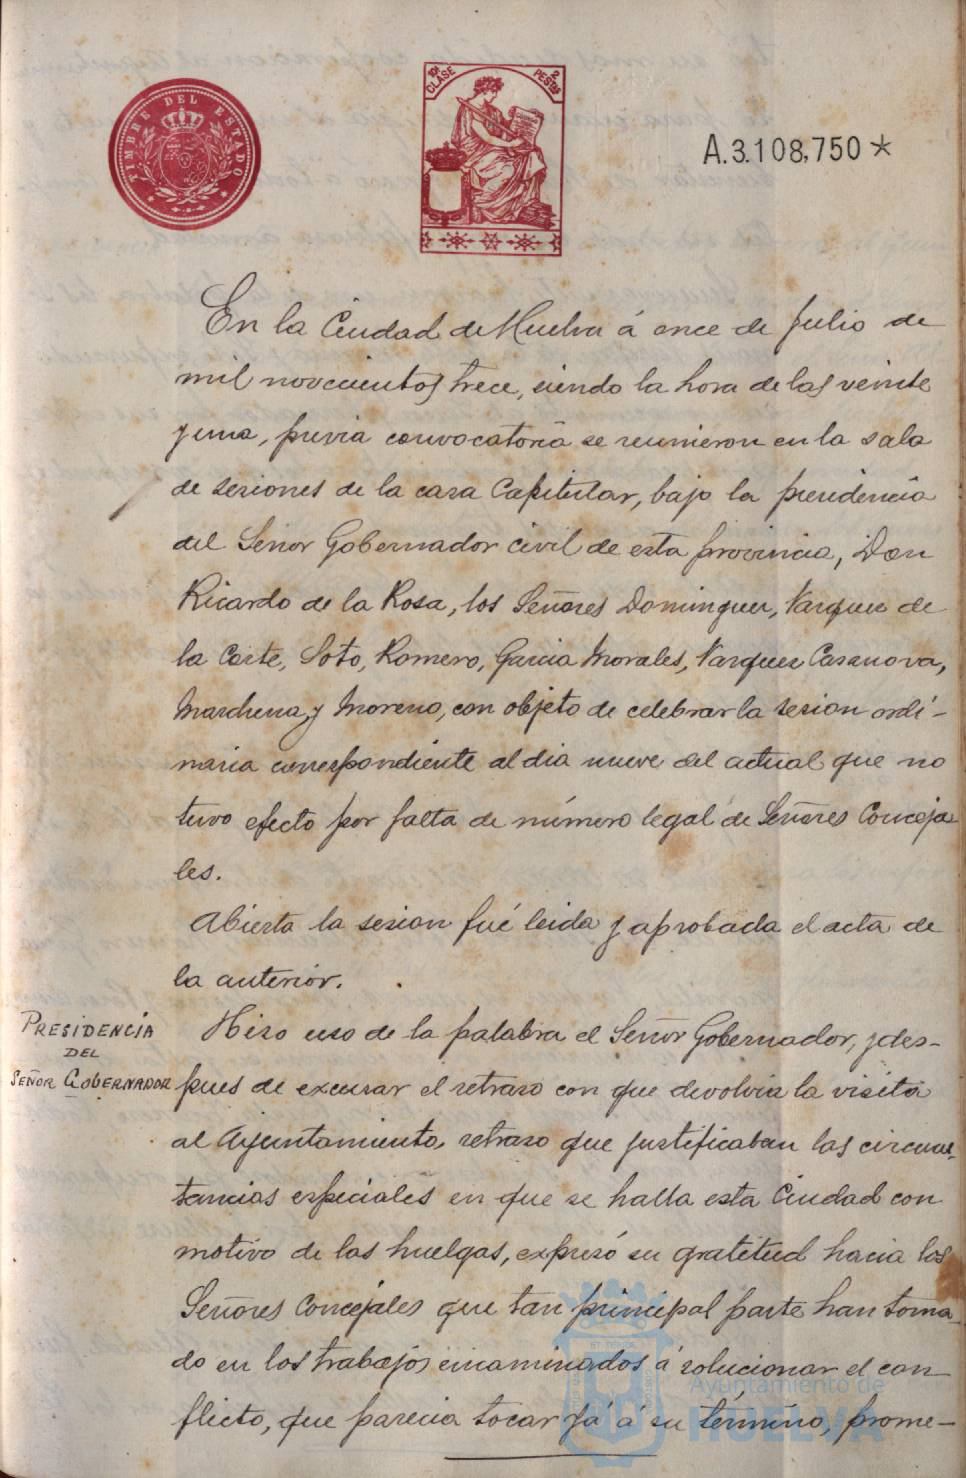 TIMBRE DEL ESTADO
10ª CLASE 2 PESTAS
A.3.108,750*
En la Ciudad de Huelva á once de Julio de
mil novecientos trece, siendo la hora de las veinte
y una, previa convocatoria se reunieron en la sala
de sesiones de la casa Capitular, bajo la presidencia
del Señor Gobernador civil de esta provincia, Don
Ricardo de la Rosa, los Señores Dominguez, Vazquez de
la Corte, Soto, Romero, Garcia Morales, Vazquez Casanova,
Marchena y Moreno, con objeto de celebrar la sesion ordi-
naria correspondiente al dia nueve del actual que no
tuvo efecto por falta de número legal de Señores Conceja-
les.
Abierta la sesion fué leida y aprobada el acta de
la anterior.
PRESIDENCIA
DEL
SEÑOR GOBERNADOR
Hizo uso de la palabra el Señor Gobernador, y des-
pues de excusar el retraso con que devolvia la visita
al Ayuntamiento, retraso que justificaban las circuns-
tancias especiales en que se halla esta Ciudad con
motivo de las huelgas, expresó su gratitud hacia los
Señores Concejales que tan principal parte han toma-
do en los trabajos encaminados á solucionar el con-
flicto, que parecia tocar yá á su término, prome-
Ayuntamiento de
HUELVA